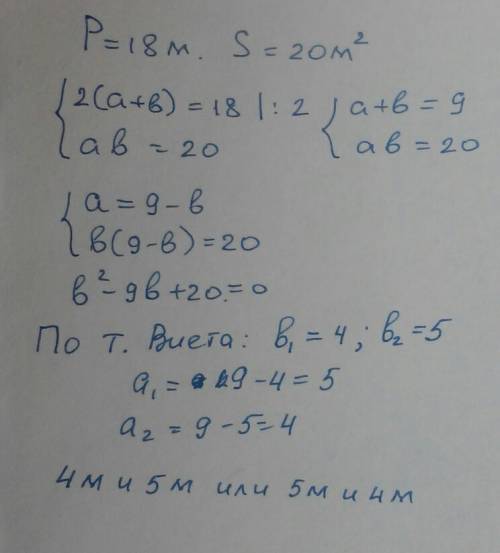 P = 18 м. S = 20 м²
{ 2(a+в) = 18 |: 2 { a+в = 9
ав = 20 ав = 20
{ a = 9 - в
в(9-в) = 20
в² - 9в + 20 = 0
По т. Виета: в₁ = 4; в₂ = 5
a₁ = 9 - 4 = 5
a₂ = 9 - 5 = 4
4 м и 5 м или 5 м и 4 м